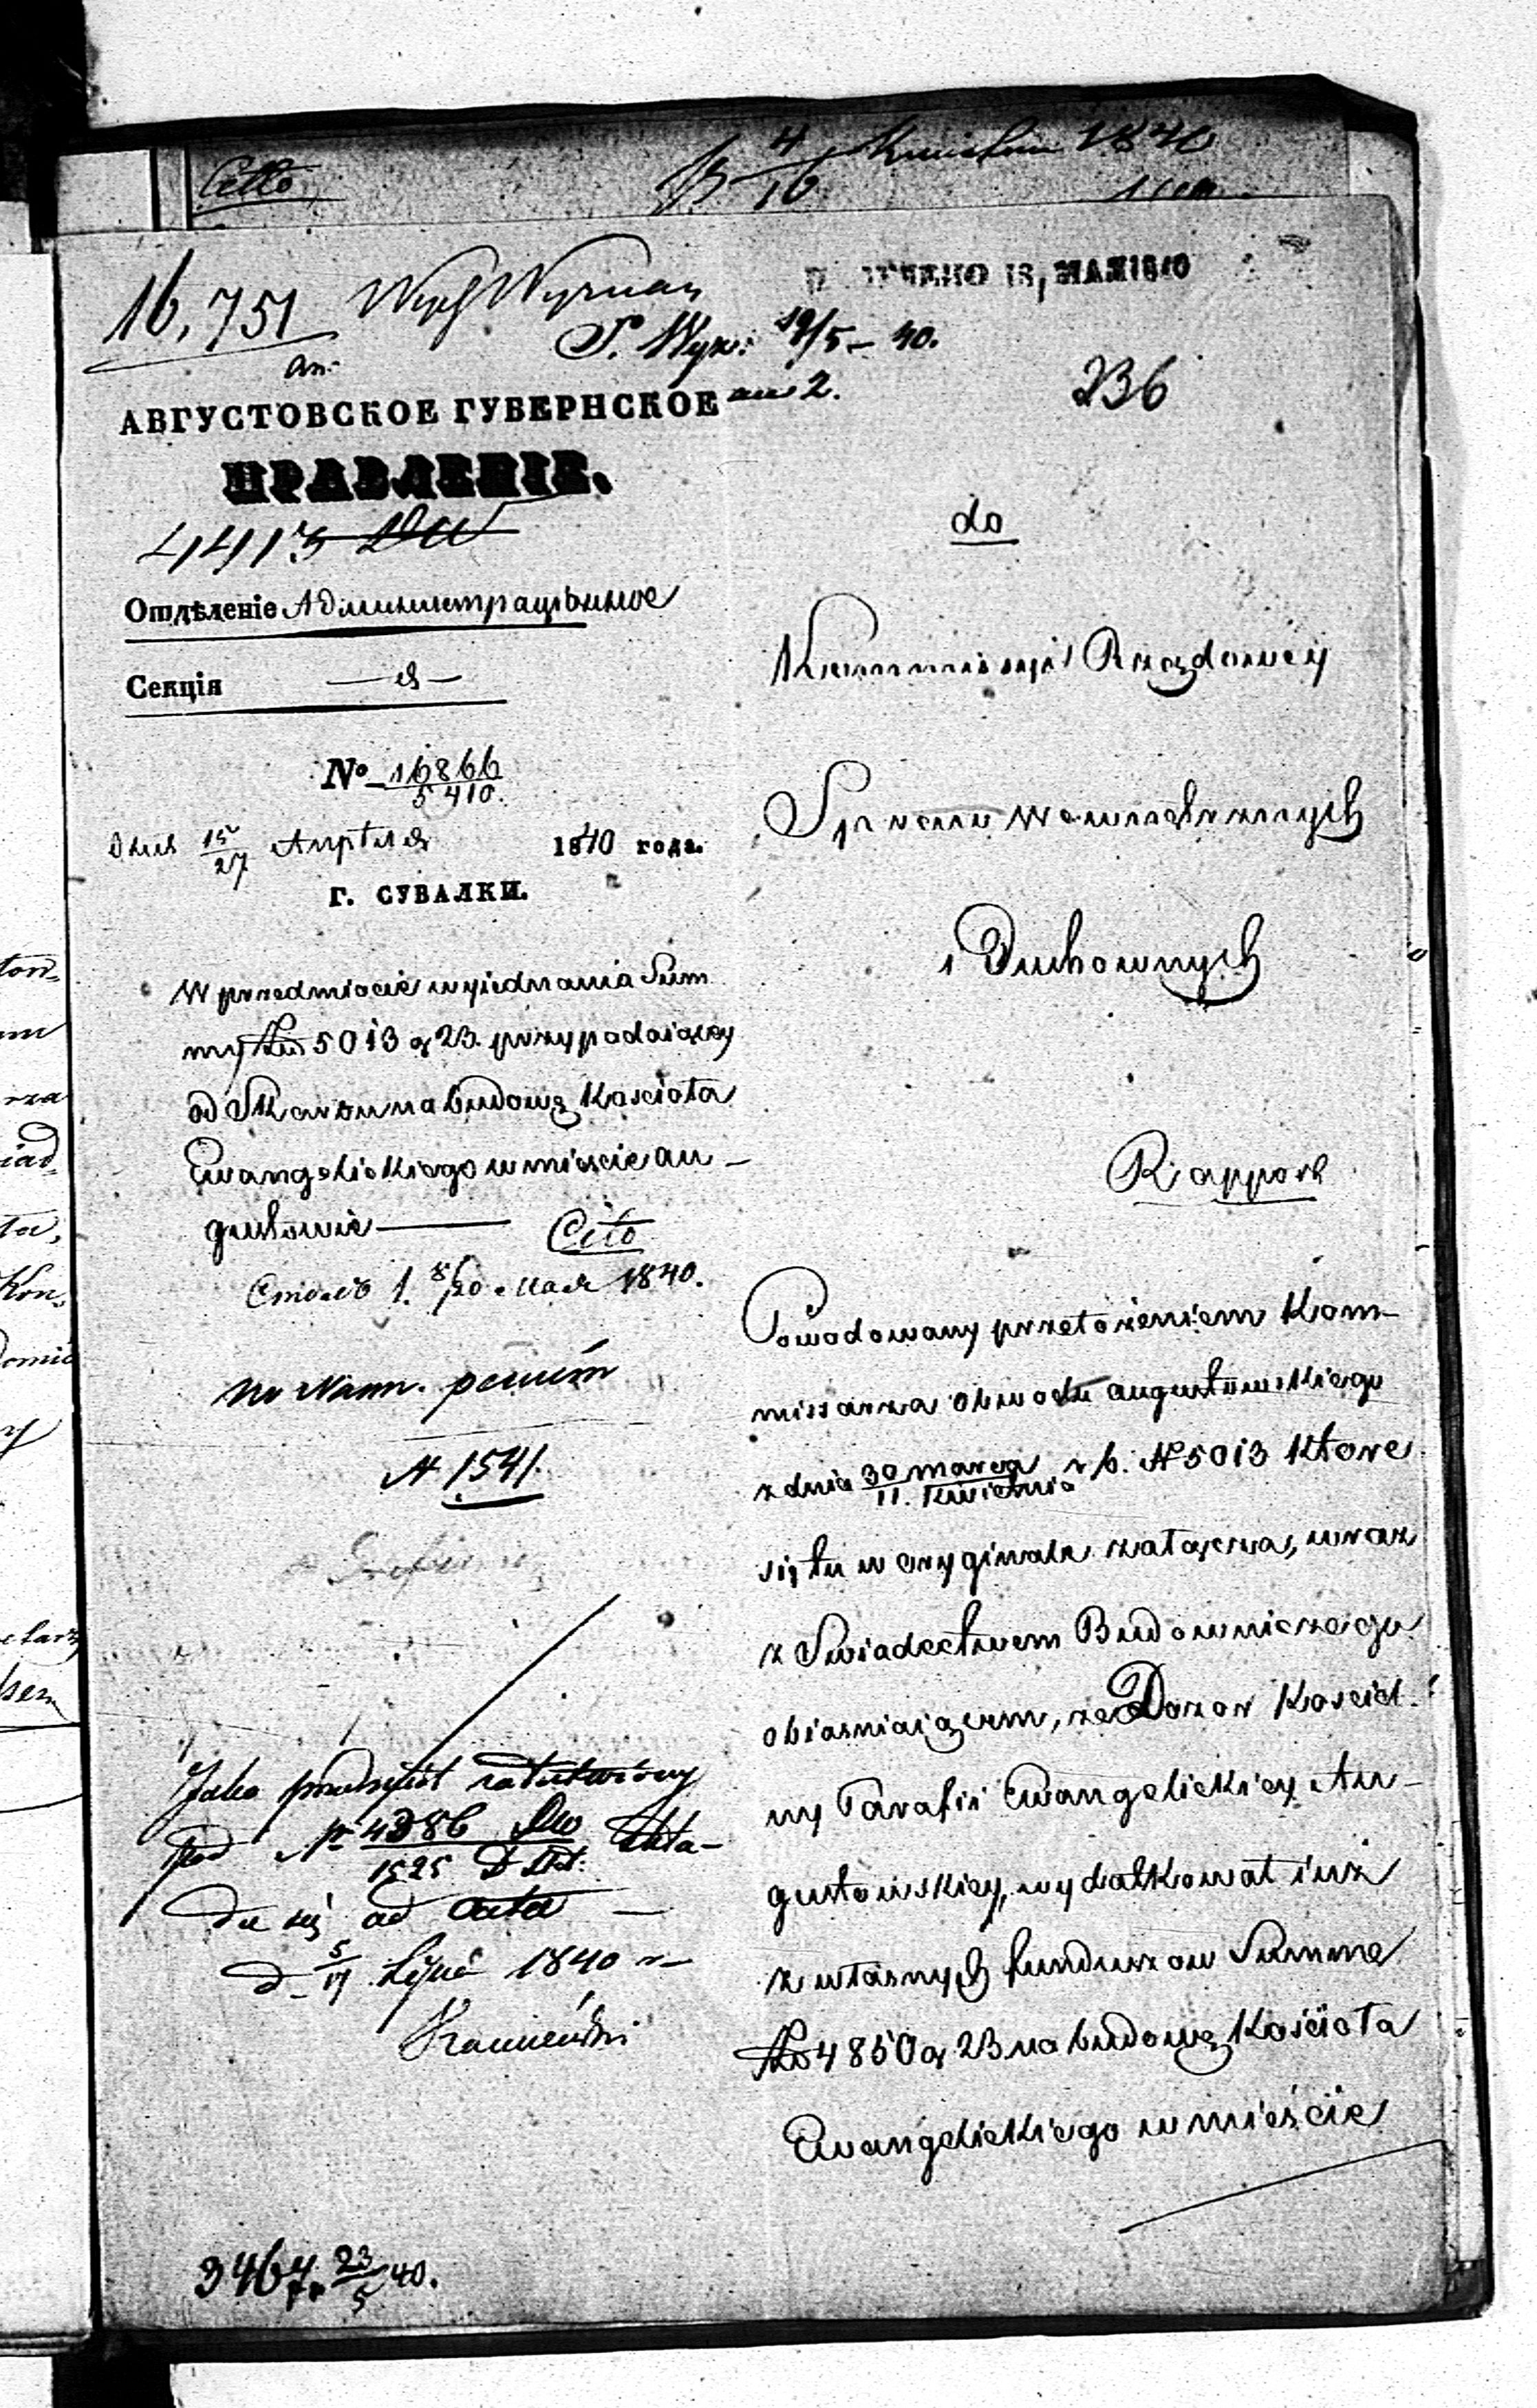 Cito
4/16 Kwietnia 1840
16,751
ПОЛУЧЕНО 18, МАЯ 1840
19/5 – 40.
an 2.
236
АВГУСТОВСКОЕ ГУБЕРНСКОЕ
ПРАВЛЕНІЕ.
Отдѣленіе Административное
Секція
№ 16866/5410.
Дня 15/27 Апрѣля 1840 года.
Г. СУВАЛКИ.
W przedmiocie wyiednania Sum
my 5013 g 23. przypadaiącey
od Skarbu na budowę Kościoła
Ewangelickiego w mieście Au–
gustowie — Cito
Столъ 1. 8/20 Мая 1840.
N 1541.
Jako przedmiot załatwiony
pod N 4386 / 1525 Skła–
da się ad acta –
d 5/17 Lipca 1840 r
Kamieński
3467 23/5 40.
do
Kommissyi Rządowéy
Spraw Wewnętrznych
i Duchownych
Rapport
Powodowany przełożeniem Kom–
missarza Obwodu Augustowskiego
z dnia 30 marca / 11. Kwietnia r b. N 5013 które
się tu w oryginale załącza, wraz
z Swiadectwem Budowniczego
obiasniaiącem, że Dozor Kościel.
ny Parafii Ewangelickiey Au–
gustowskiey, wydatkował iuż
z własnych funduszow Summę
4850 g 23 na budowę Kościoła
Ewangelickiego w mieście